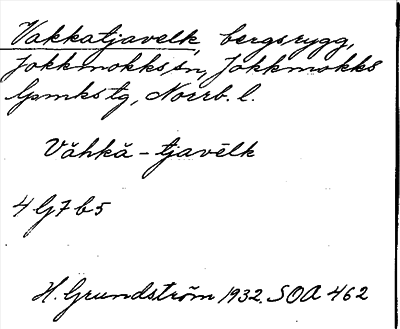 Vakkatjavelk, bergsrygg,
Jokkmokks sn, Jokkmokks
lpmks tg, Norrb. l.
Văhkă - tjavēlk
4 G 7 b 5
H. Grundström 1932. SOA 462